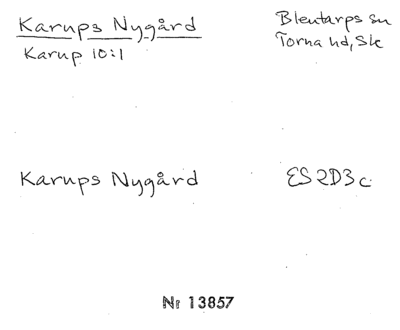 Karups Nygård
Karup 10:1
Blentarps sn
Torna hd, Sk
Karups Nygård
ES2D3c
Nr 13857